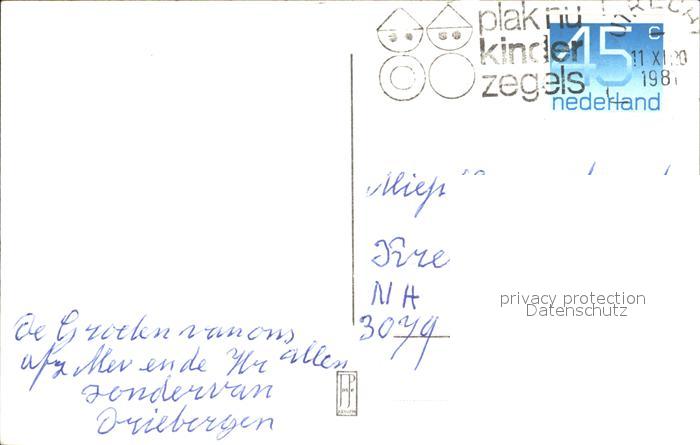 plak nu
kinder
zegels
UTRECHT
11 XI 20
198
45 c
nederland
Miep
Kre
NH
3079
privacy protection
Datenschutz
De Groeten van ons
allen
afz Mev en de Hr
zondervan
Driebergen